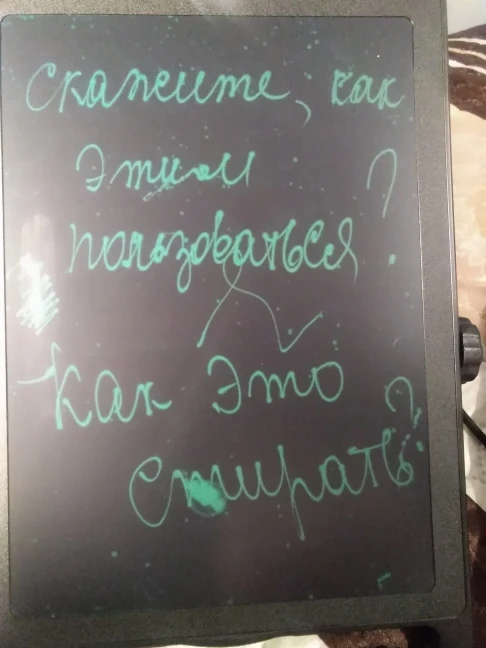 Скажите, как
этим
пользоваться?
Как это
стирать?